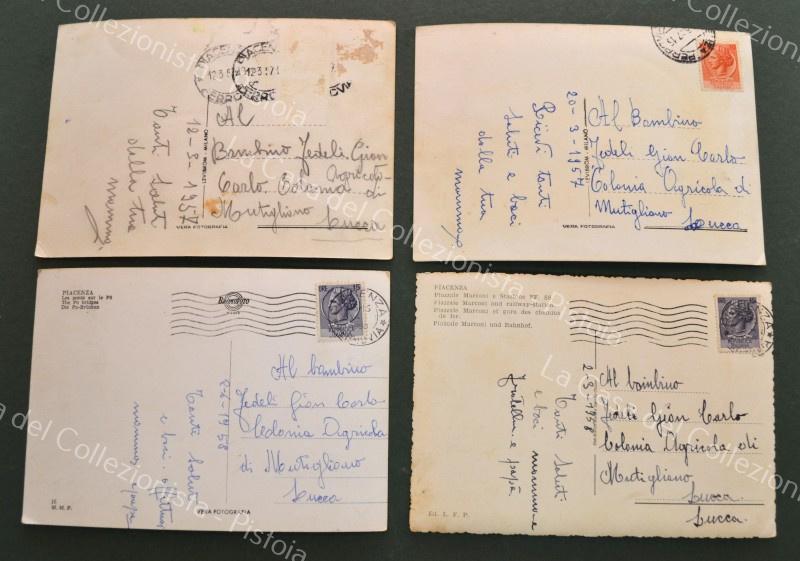 PIACENZA
12.3.57
FERROVIA
12-3-1957
Tanti Saluti
dalla tua
mamma
VERA FOTOGRAFIA
Al
Bambino Fedeli Gian
Carlo. Colonia Agricola di
Mutigliano Lucca
FERROVIA
20-3-1957
Ricevi tanti
saluti e baci
dalla tua
mamma
VERA FOTOGRAFIA
Al Bambino
Fedeli Gian Carlo
Colonia Agricola di
Mutigliano Lucca
PIACENZA
Les ponts sur le Pô
The Po bridges
Die Po-Brücken
PIACENZA
FERROVIA
Tanti Saluti
e baci
mamma e papà
16
VERA FOTOGRAFIA
Al bambino
Fedeli Gian Carlo
Colonia Agricola
di Mutigliano
Lucca
PIACENZA
Piazzale Marconi e Stazione FF. SS.
Piazzale Marconi and railway-station.
Piazzale Marconi et gare des chemins
de fer.
Piazzale Marconi und Bahnhof.
2-3-1958
Tanti Saluti
e baci mamma e
fratellin e papà
Ed. L. F. P.
Al bambino
Fedeli Gian Carlo
Colonia Agricola di
Mutigliano
Lucca.
Lucca.
La Casa del Collezionista - Pistoia